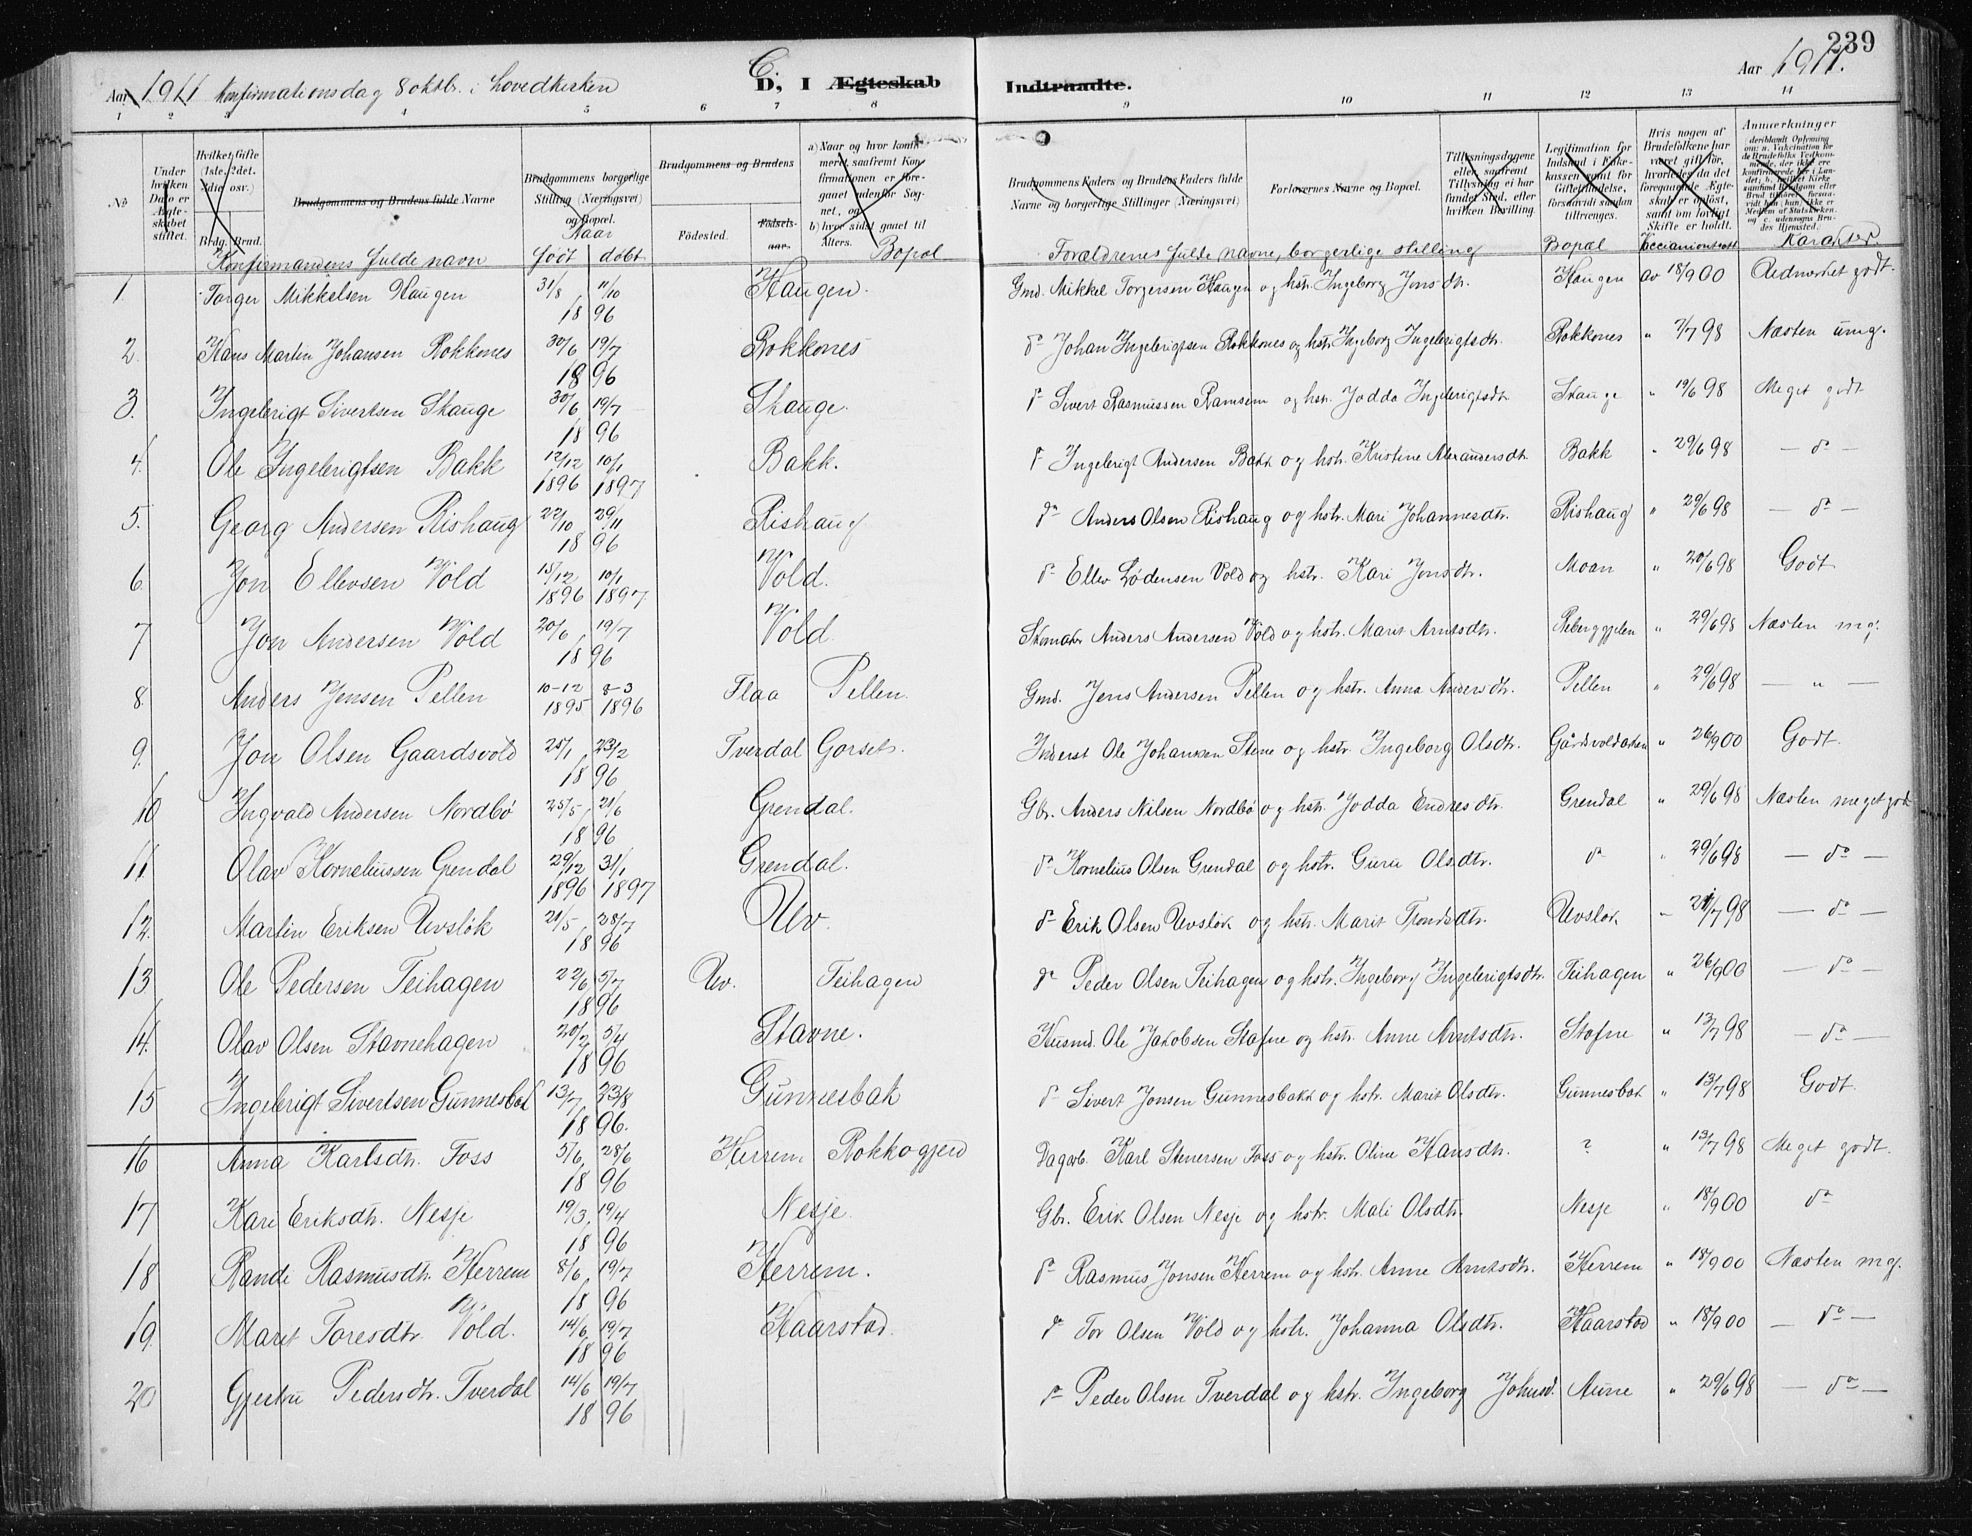 239
Aar 1911 Konfirmationsdag 8 oktb. i hovedkirken C. D, I Ægteskab Indtraadte. Aar 1911.
1 2 3 4 5 6 7 8 9 10 11 12 13 14
No Under hvilken Dato er Ægteskabet stiftet. Hvilket Gifte (1ste, 2det, 3die osv.) Brdg. Brud. Brudgommens og Brudens fulde Navne Brudgommens borgerlige Stilling (Næringsvei) og Bopæl. Brudgommens og Brudens Fødested. Fødselsaar. a) Naar og hvor konfirmeret, saafremt Konfirmationen er foregaaet udenfor Sognet, og b) hvor sidst gaaet til Alters. Brudgommens Faders og Brudens Faders fulde Navne og borgerlige Stillinger (Næringsvei) Forlovernes Navne og Bopæl. Tillysningsdagene eller, saafremt Tillysning ei har fundet Sted, efter hvilken Bevilling.
Konfirmandens fulde navn Naar født døbt Bopæl Forældrenes fulde navne, borgerlige stilling Bopæl Vaccinationsatt Karakter.
1. Torger Mikkelsen Haugen 31/8 11/10 1896 Haugen. Gmd. Mikkel Torgersen Haugen og hstr. Ingeborg Jonsdtr. Haugen av 18/9 00 Udmerket godt.
2. Hans Martin Johansen Rokkones 30/6 19/7 1896 Rokkones do Johan Ingelerigtsen Rokkones og hstr. Ingeborg Ingelerigtsdtr. Rokkones " 7/7 98 Næsten umg.
3. Ingelerigt Sivertsen Skauge 30/6 19/7 1896 Skauge. do Sivert Rasmussen Ramsem og hstr. Jodda Ingelerigtsdtr. Skauge " 19/6 98 Meget godt
4. Ole Ingelerigtsen Bakk 12/12 1896 10/1 1897 Bakk. do Ingelerigt Andersen Bakk og hstr. Kristine Alexandersdtr. Bakk " 29/6 98 — do —
5. Georg Andersen Rishaug 22/10 29/11 1896 Rishaug do Anders Olsen Rishaug og hstr. Mari Johannesdtr. Rishaug " 29/6 98 — do —
6. Jon Ellevsen Vold 15/12 1896 10/1 1897 Vold. do Ellev Lødensen Vold og hstr. Kari Jonsdtr. Moan " 20/6 98 Godt
7 Jon Andersen Vold 20/6 19/7 1896 Vold Skomaker Anders Andersen Vold og hstr. Marit Arntsdtr. " 29/6 98 Næsten mg.
8. Anders Jensen Pellen 10-12 1895 8-3 1896 Flaa Pellen. Gmd. Jens Andersen Pellen og hstr. Anna Andersdtr. Pellen " 29/6 98 — " —
9. Jon Olsen Gaardsvold 25/1 23/2 1896 Tverdal Gorset. Inderst Ole Johansen Stene og hstr. Ingeborg Olsdtr. " 26/9 00 Godt.
10 Ingvald Andersen Nordbø 25/5 21/6 1896 Grendal. Gbr. Anders Nilsen Nordbø og hstr. Jodda Endresdtr. Grendal " 29/6 98 Næsten meget godt
11. Olav Korneliussen Grendal 29/12 1896 31/1 1897 Grendal. do Kornelius Olsen Grendal og hstr. Guru Olsdtr. do " 29/6 98 — do —
12. Martin Eriksen Uvsløk 21/5 28/7 1896 Uv. do Erik Olsen Uvsløk og hstr. Marit Trondsdtr. Uvsløk " 21/7 98 — do —
13 Ole Pedersen Teihagen 22/6 5/7 1896 Uv. Teihagen do Peder Olsen Teihagen og hstr. Ingeborg Ingelerigtsdtr. Teihagen " 26/9 00 — do —
14. Olav Olsen Stavnehagen 20/2 5/4 1896 Stavne. Husmd. Ole Jakobsen Stafne og hstr. Anne Arntsdtr. Stafne " 13/7 98 — do —
15 Ingelerigt Sivertsen Gunnesbak 13/7 23/8 1896. Gunnesbak do Sivert Jonsen Gunnesbakk og hstr. Marit Olsdtr. Gunnesbak " 13/7 98 Godt.
16 Anna Karlsdtr. Foss 5/6 28/6 1896 Herrem Rokkogjerd Dagarb. Karl Stenersen Foss og hstr. Oline Hansdtr. ? " 13/7 98 Meget godt.
17 Kari Eriksdtr. Nesje 19/3 19/4 1896 Nesje. Gbr. Erik Olsen Nesje og hstr. Mali Olsdtr. Nesje " 18/9 00 do
18 Rande Rasmusdtr. Herrem 8/6 19/7 1896 Herrem. do Rasmus Jonsen Herrem og hstr. Anne Arntsdtr. Herrem " 18/9 00 Næsten mg.
19. Marit Toresdtr. Vold. 14/6 19/7 1896 Haarstad. do Tor Olsen Vold og hstr. Johanna Olsdtr. Haarstad " 18/9 00 — do —
20 Gjertru Pedersdtr. Tverdal 14/6 19/7 1896 do Peder Olsen Tverdal og hstr. Ingeborg Johnsd. Aune " 29/6 98 — do —